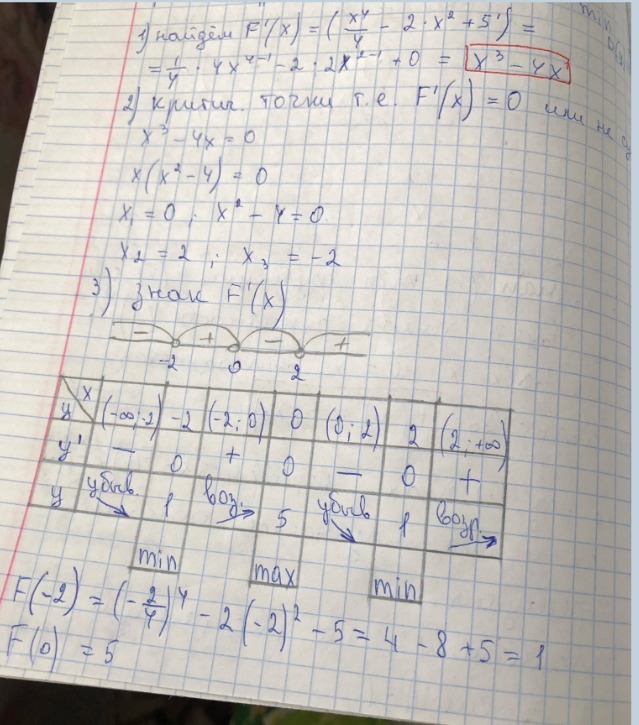 1) найдём F'(x) = (x⁴/4 - 2·x² + 5') =
= 1/4 · 4x⁴⁻¹ - 2·2x²⁻¹ + 0 = x³ - 4x
2) критич. точки т.е. F'(x) = 0 или не
x³ - 4x = 0
x(x² - 4) = 0
x₁ = 0 ; x² - 4 = 0
x₂ = 2 ; x₃ = -2
3) знак F'(x)
- + - +
-2 0 2
x (-∞;-2) -2 (-2;0) 0 (0;2) 2 (2;+∞)
y
y' - 0 + 0 - 0 +
y убыв. 1 воз. 5 убыв 1 возр.
min max min
F(-2) = (-2/4)⁴ - 2(-2)² - 5 = 4 - 8 + 5 = 1
F(0) = 5
min